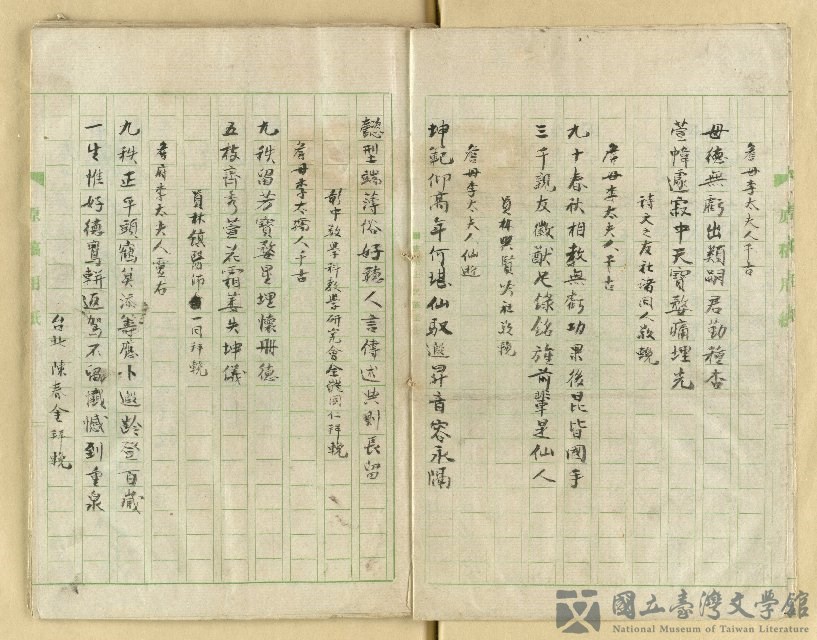 詹母李太夫人千古
母德無虧出類嗣君勤種杏
萱幃遽寂中天寶婺痛埋光
詩文之友社諸同人敬輓
詹母李太夫人千古
九十春秋相教無虧功果後昆皆國手
三千親友徽猷足錄銘旌前輩是仙人
員林興賢吟社敬輓
詹母李太夫人仙逝
坤範仰高年何堪仙馭遐昇音容永隔
懿型端薄俗好聽人言傳述典則長留
彰中數學科教學研究會全體同仁拜輓
詹母李太孺人千古
九秩留芳寶婺星埋懷母德
五枝齊秀萱花霜萎失坤儀
員林鎮醫師一同拜輓
詹府李太夫人靈右
九秩正平頭鶴算添籌應卜遐齡登百歲
一生惟好德鸞軿返駕不留纖憾到重泉
台北 陳春金拜輓
原稿用紙
國立臺灣文學館
National Museum of Taiwan Literature